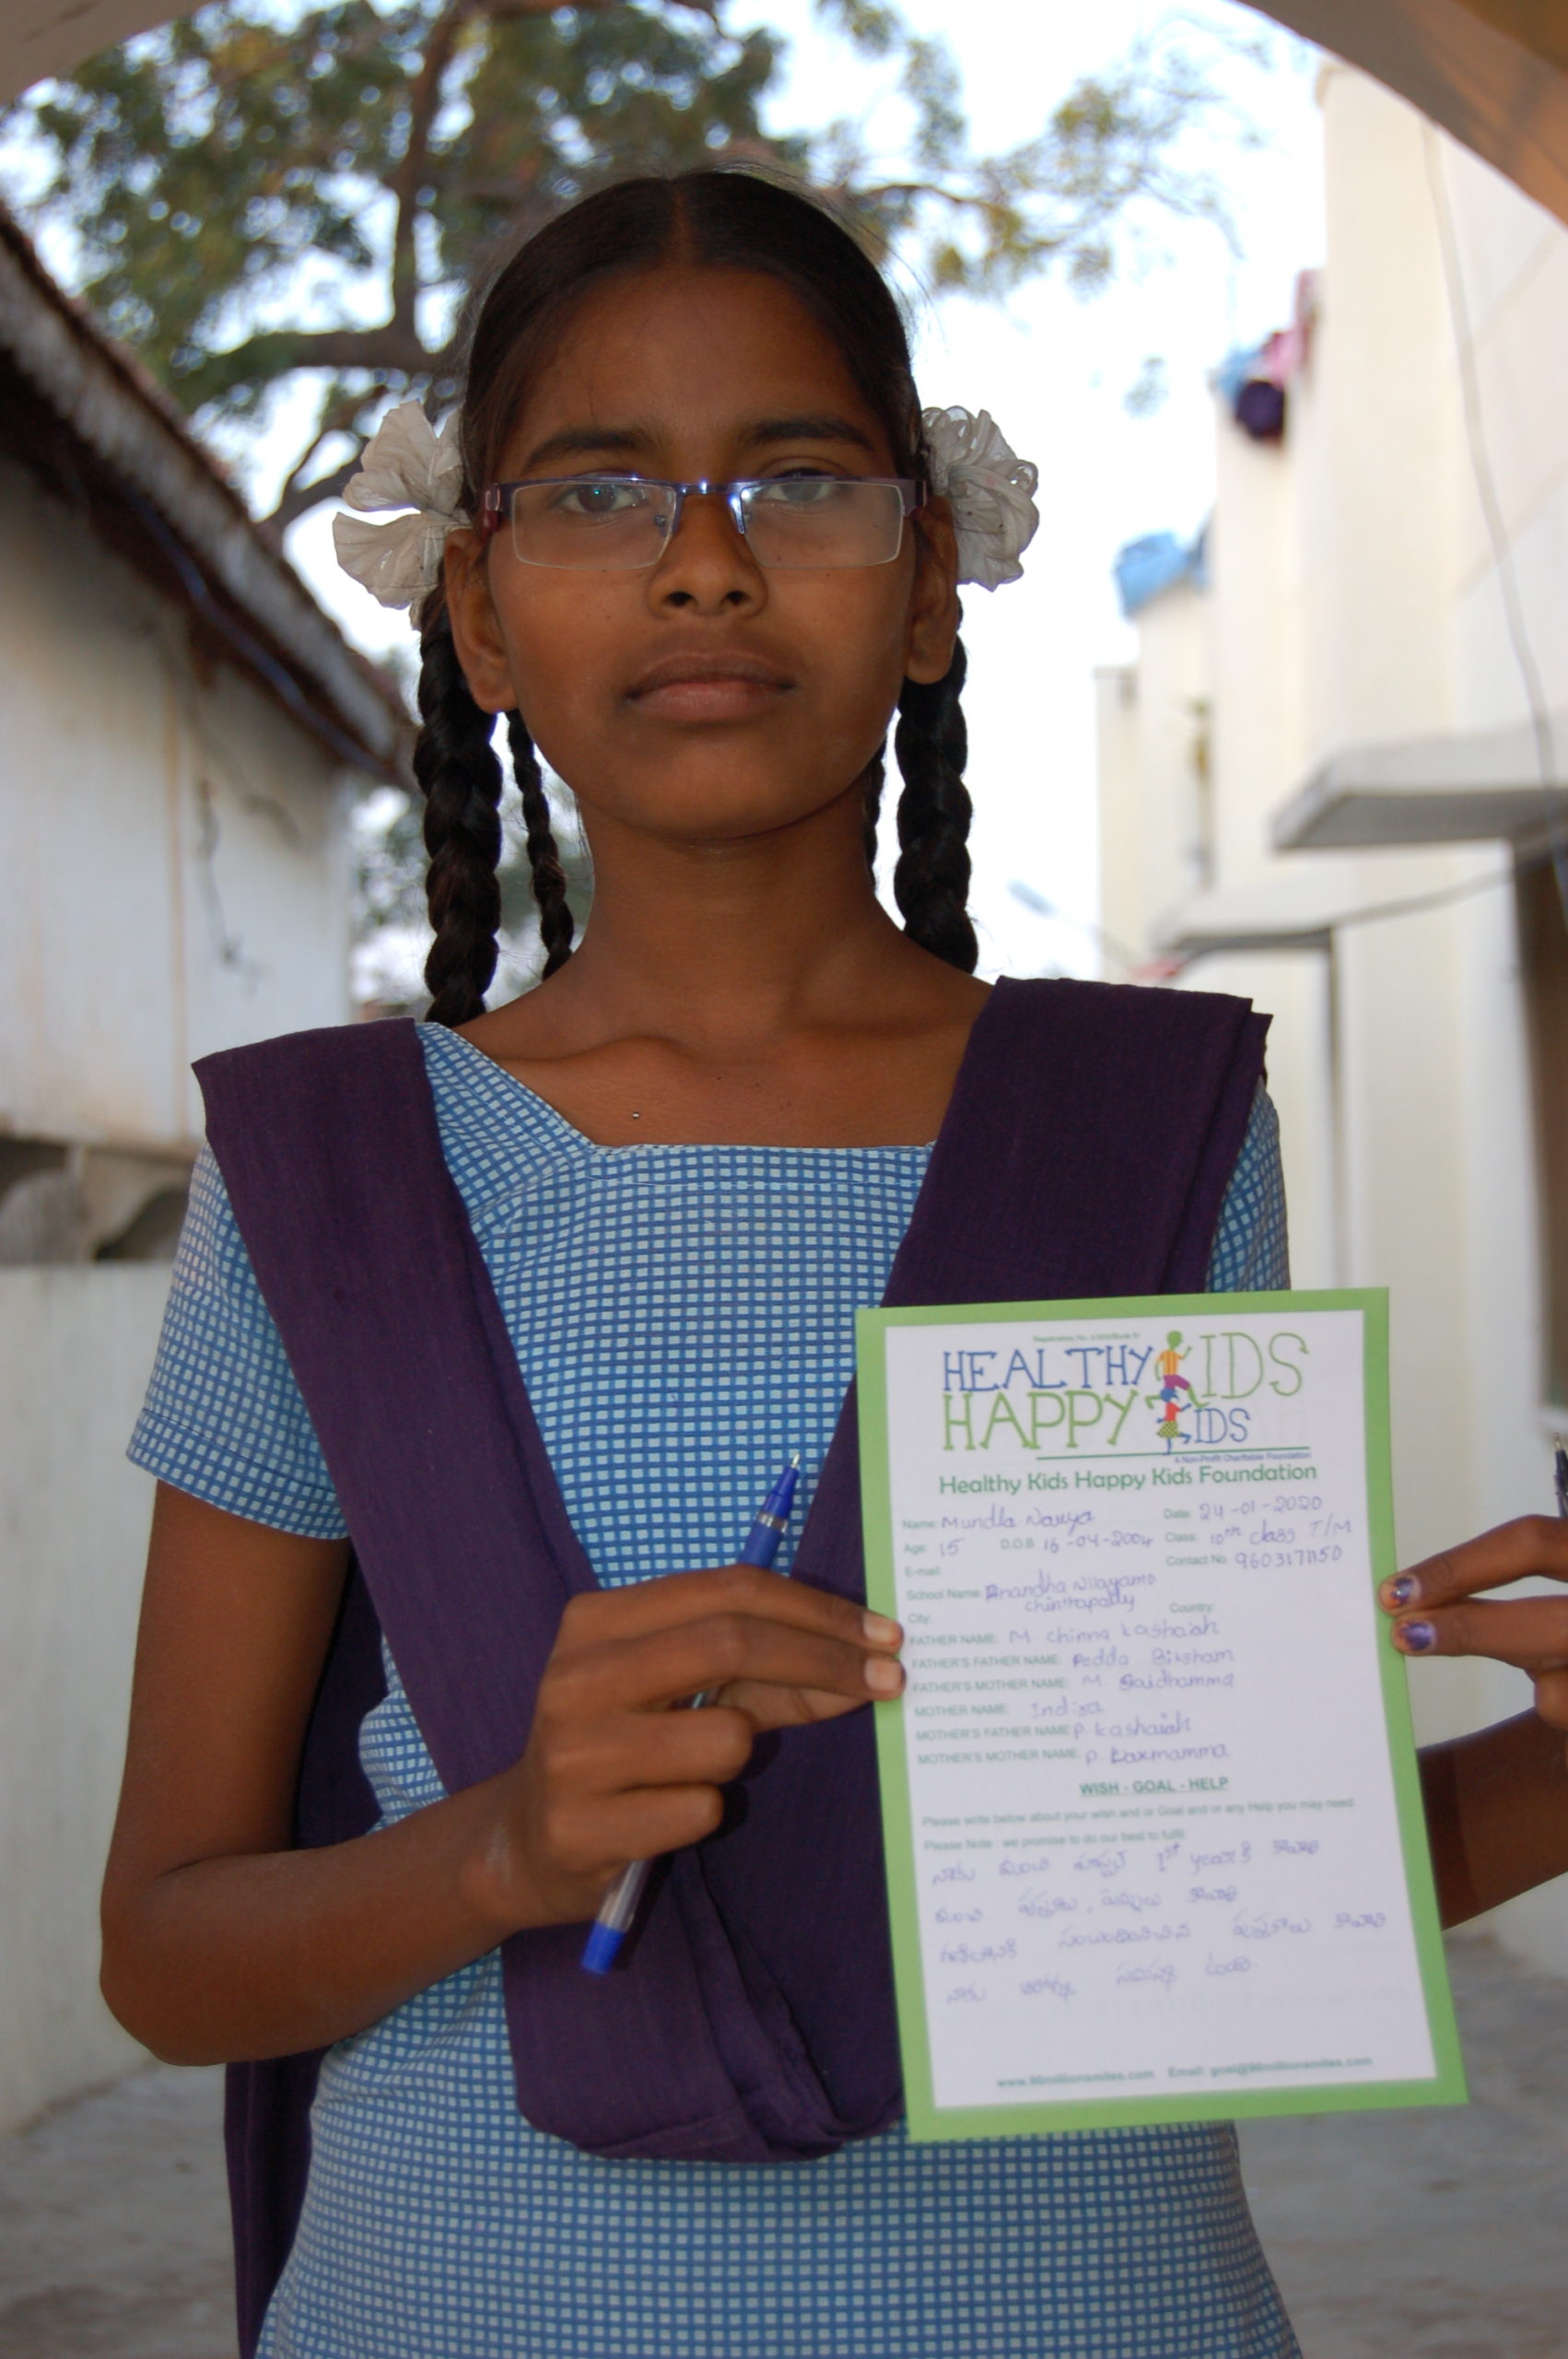 HEALTHY KIDS
HAPPY KIDS
A Non-Profit Charitable Foundation
Healthy Kids Happy Kids Foundation
Name: Mundla Navya Date: 24-01-2020
Age: 15 D.O.B 16-04-2004 Class: 10th class T/M
E-mail: Contact No. 9603171150
School Name: Anandha Nilayamo
chinthapally
City: Country:
FATHER NAME: M chinna kashaiah
FATHER'S FATHER NAME: Pedda Biksham
FATHER'S MOTHER NAME: M Saidhamma
MOTHER NAME: Indira
MOTHER'S FATHER NAME: P. kashaiah
MOTHER'S MOTHER NAME: P. Laxmamma
WISH - GOAL - HELP
Please write below about your wish and or Goal and or any Help you may need
Please Note : we promise to do our best to fulfil
నాకు మంచి 1st yearకి కావాలి
మంచి కావాలి
సంబంధించిన పుస్తకాలు కావాలి
నాకు సమస్య ఉంది.
www.90millionsmiles.com Email: goal@90millionsmiles.com